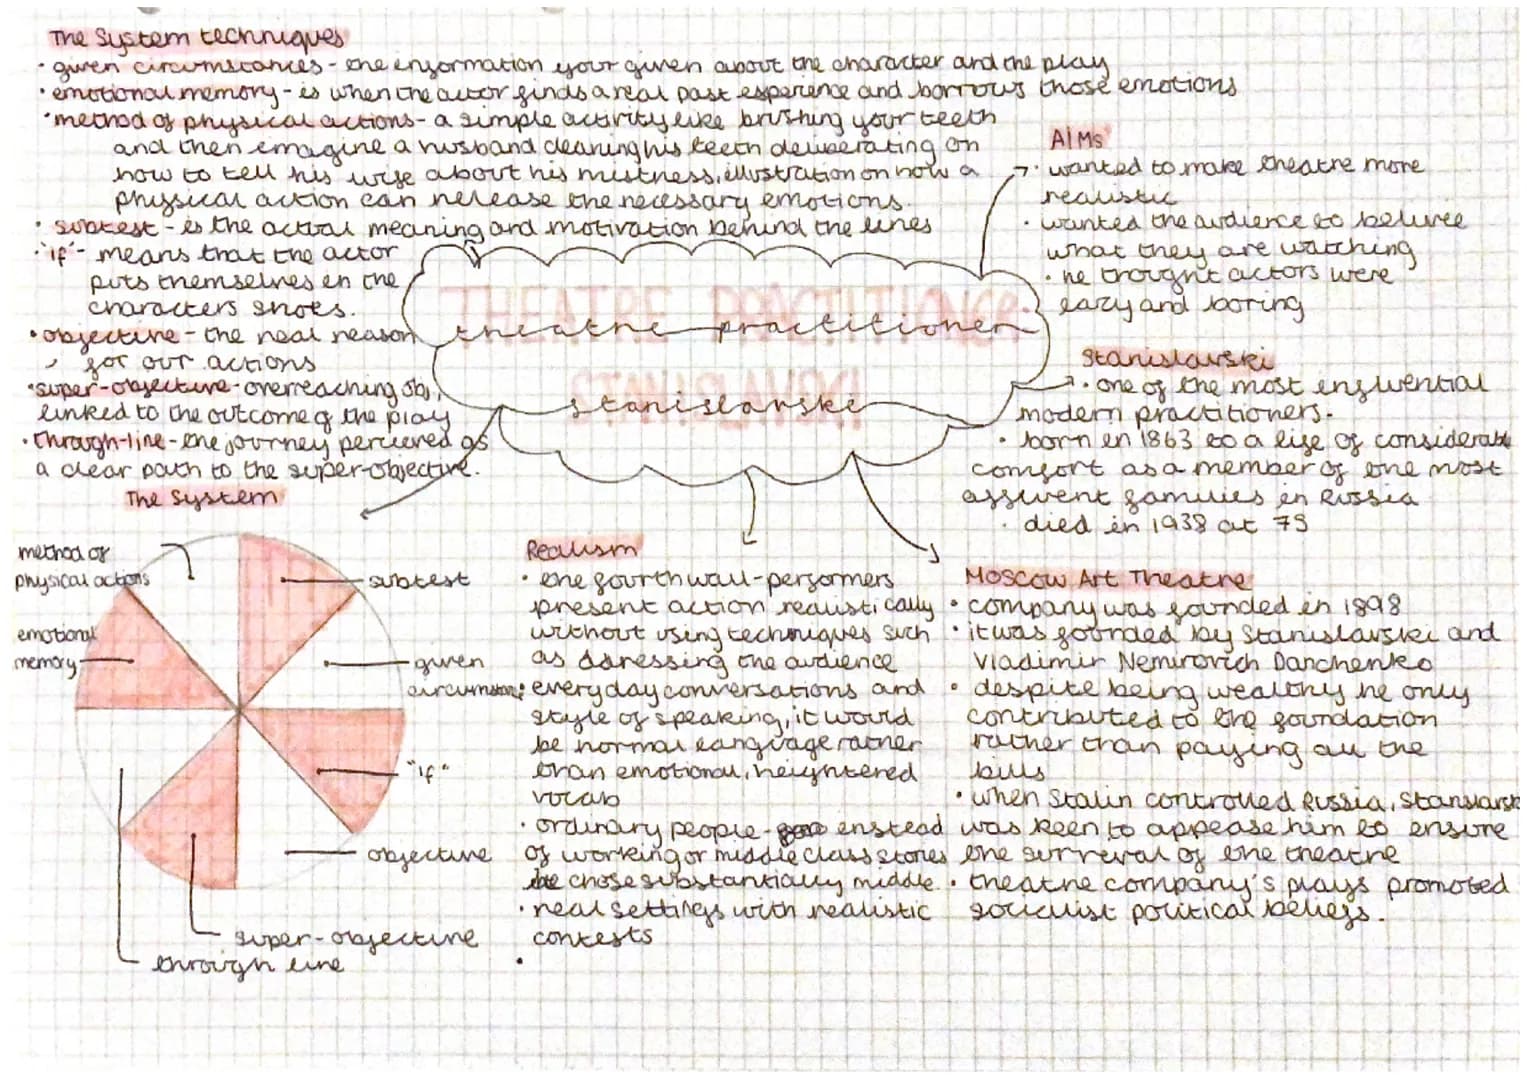 The System techniques
• given circumstances - the information your given about the character and the play
• emotional memory - is when the actor finds a real past experience and borrows those emotions
• method of physical actions - a simple activity like brushing your teeth
and then imagine a husband cleaning his teeth deliberating on
how to tell his wife about his mistress, illustration on how a
physical action can release the necessary emotions.
• subtext - is the actual meaning and motivation behind the lines
• 'if' - means that the actor
puts themselves in the
characters shoes.
• objective - the real reason
for our actions
• super-objective - overreaching obj,
linked to the outcome of the play
• through-line - the journey percieved as
a clear path to the super-objective.
AIMs
• wanted to make theatre more
realistic
• wanted the audience to believe
what they are watching
• he thought actors were
lazy and boring
THEATRE PRACTITIONER:
theatre practitioner
STANISLAVSKI
stanislavski
Stanislavski
• one of the most influential
modern practitioners.
• born in 1863 to a life of considerable
comfort as a member of the most
affluent families in Russia
• died in 1938 at 75
The System
method of
physical actions
subtext
emotional
memory
given
circumstan:
"if"
objective
super-objective
through line
Realism
• the fourth wall - performers
present action realistically
without using techniques such
as adressing the audience
• everyday conversations and
style of speaking, it would
be normal language rather
than emotional, heightered
vocab
• ordinary people - instead
of working or middle class stories
he chose substantially middle.
• real settings with realistic
contexts
•
Moscow Art Theatre
• company was founded in 1898
• it was founded by Stanislavski and
Vladimir Nemirovich Danchenko
• despite being wealthy he only
contributed to the foundation
rather than paying all the
bills
• when Stalin controlled Russia, Stanslavski
was keen to appease him to ensure
the survival of the theatre
• theatre company's plays promoted
socialist political beliefs.